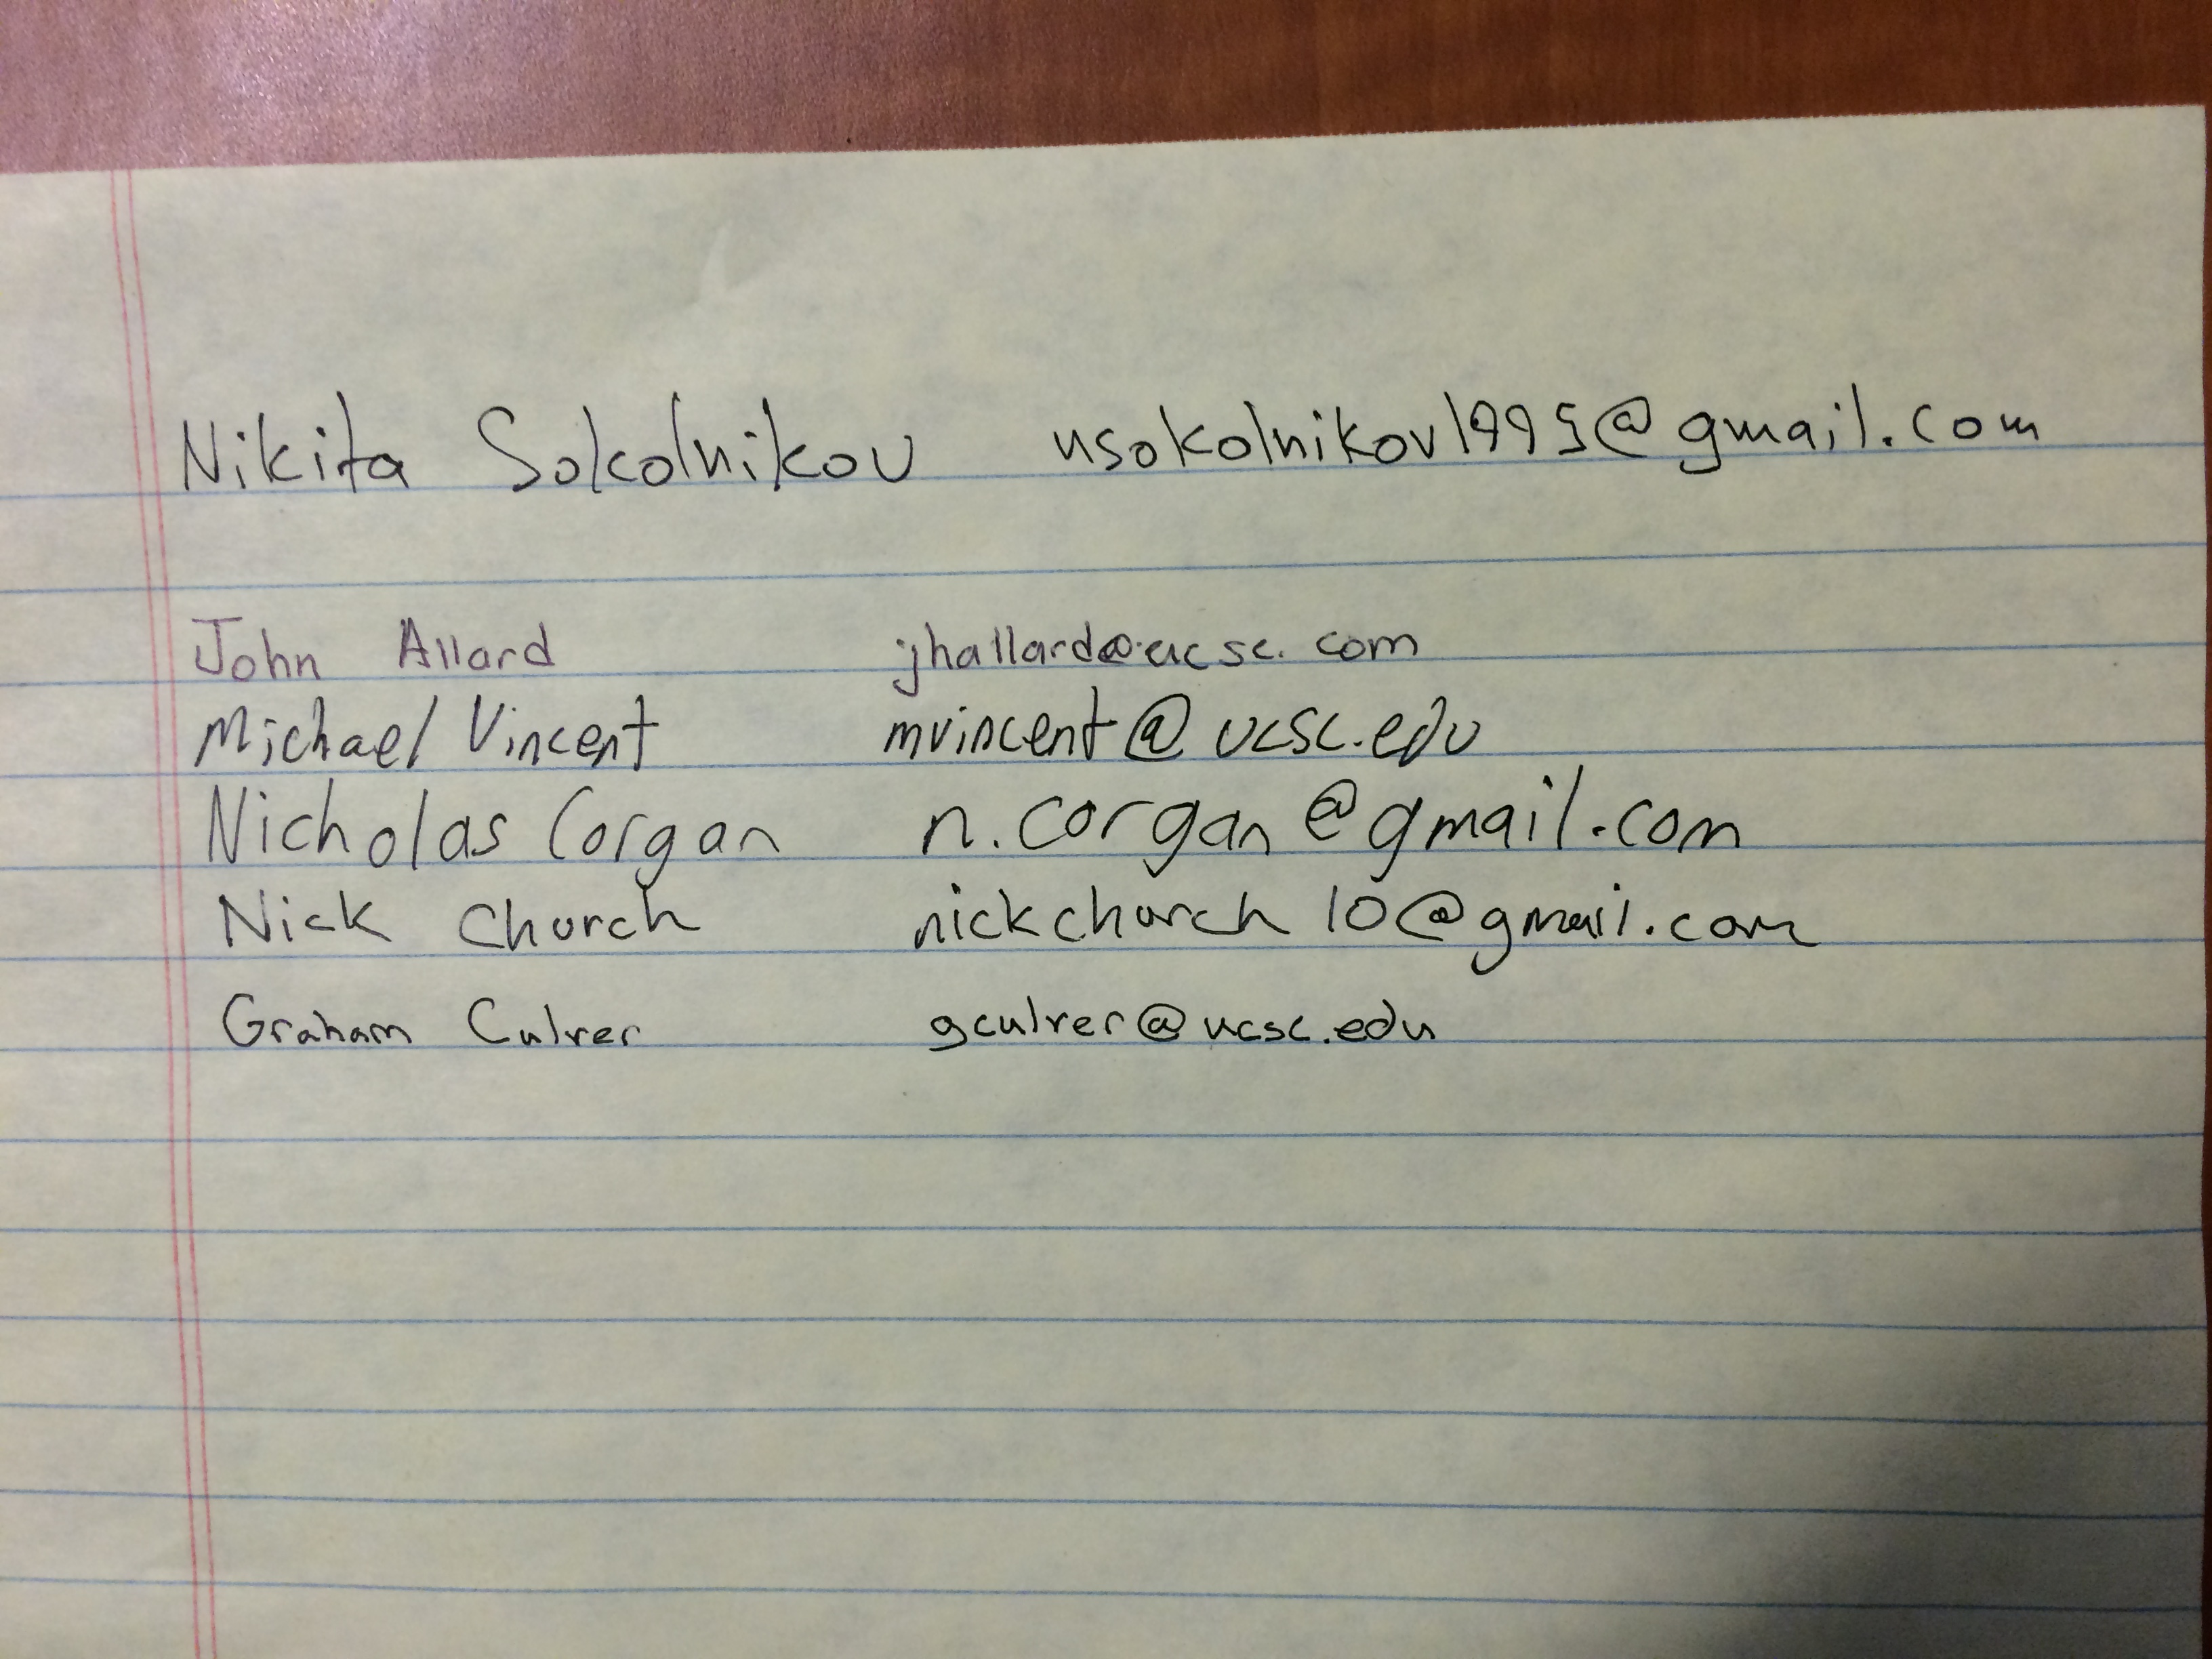 Nikita Sokolnikov nsokolnikov1995@gmail.com
John Allard jhallard@ucsc.com
Michael Vincent mvincent@ucsc.edu
Nicholas Corgan n.corgan@gmail.com
Nick Church nickchurch10@gmail.com
Graham Culver gculver@ucsc.edu